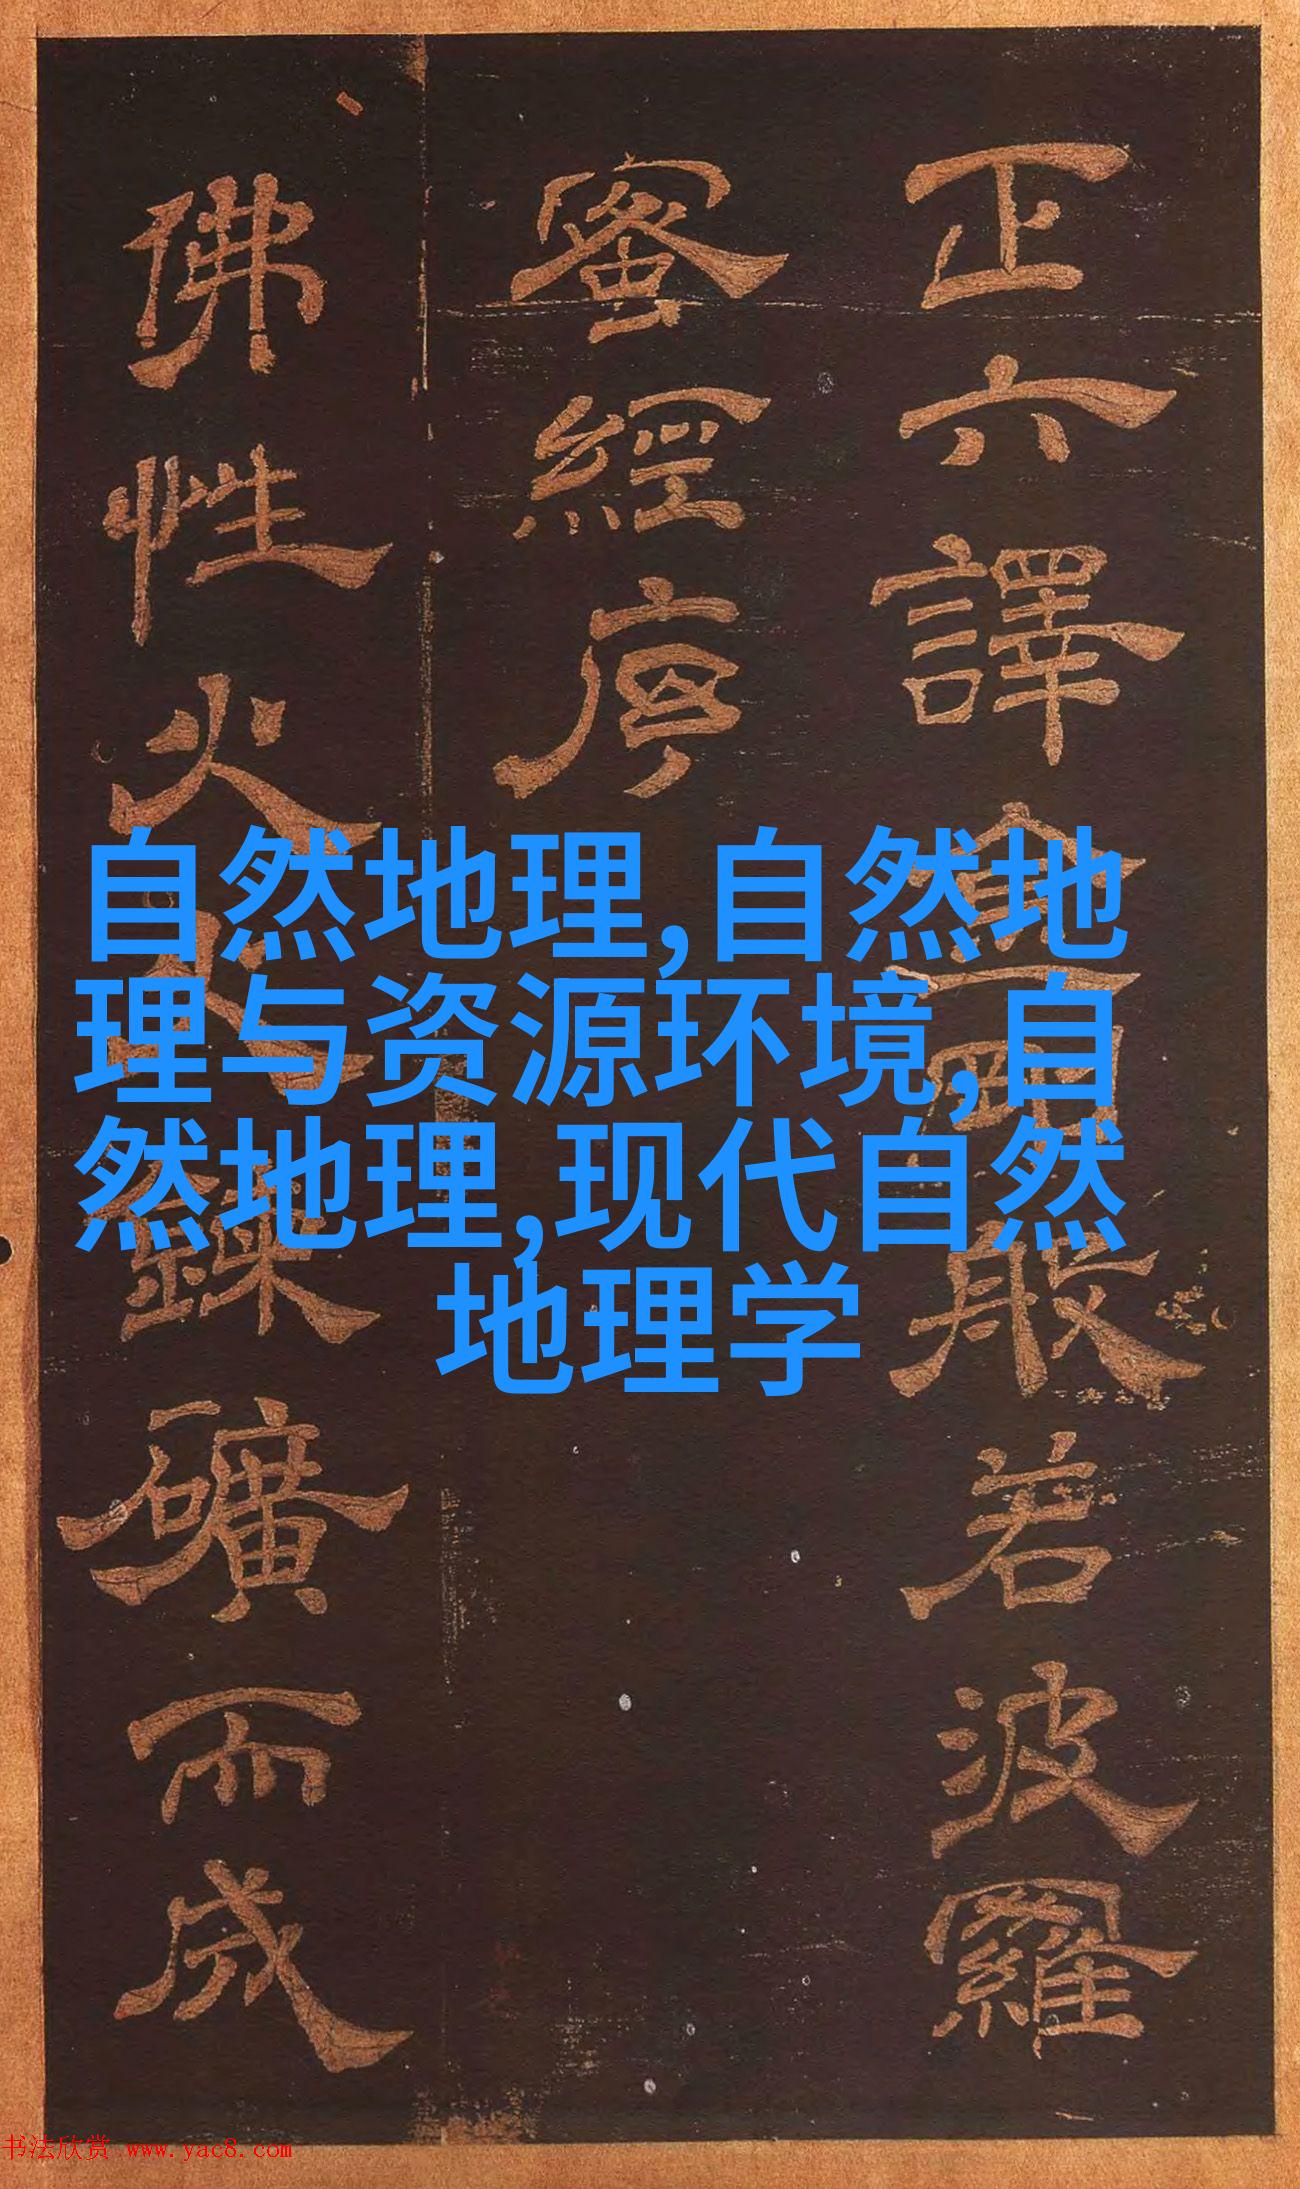 正六譯金剛般若波羅
蜜經序
佛性火鍊礦而成
自然地理,自然地
理与资源环境,自
然地理,现代自然
地理学
书法欣赏 www.yac8.com